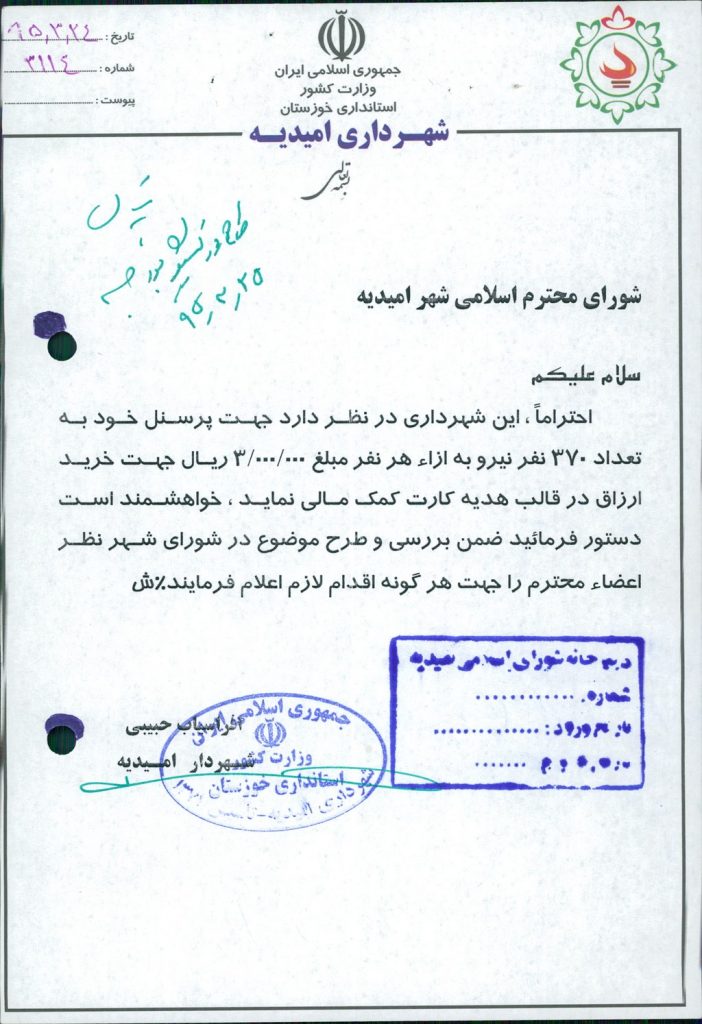 جمهوری اسلامی ایران
وزارت کشور
استانداری خوزستان
شهرداری امیدیه
بسمه تعالی
تاریخ : ۹۵,۳,۲۴
شماره : ۳۱۱۴
پیوست :
۹۵٫۳٫۲۵
شورای محترم اسلامی شهر امیدیه
سلام علیکم
احتراماً ، این شهرداری در نظر دارد جهت پرسنل خود به
تعداد ۳۷۰ نفر نیرو به ازاء هر نفر مبلغ ۳/۰۰۰/۰۰۰ ریال جهت خرید
ارزاق در قالب هدیه کارت کمک مالی نماید ، خواهشمند است
دستور فرمائید ضمن بررسی و طرح موضوع در شورای شهر نظر
اعضاء محترم را جهت هر گونه اقدام لازم اعلام فرمایند٪ش
دبیرخانه شورای اسلامی امیدیه
شماره:
تاریخ ورود:
افراسیاب حبیبی
شهردار امیدیه
جمهوری اسلامی ایران
وزارت کشور
استانداری خوزستان
شهرداری امیدیه